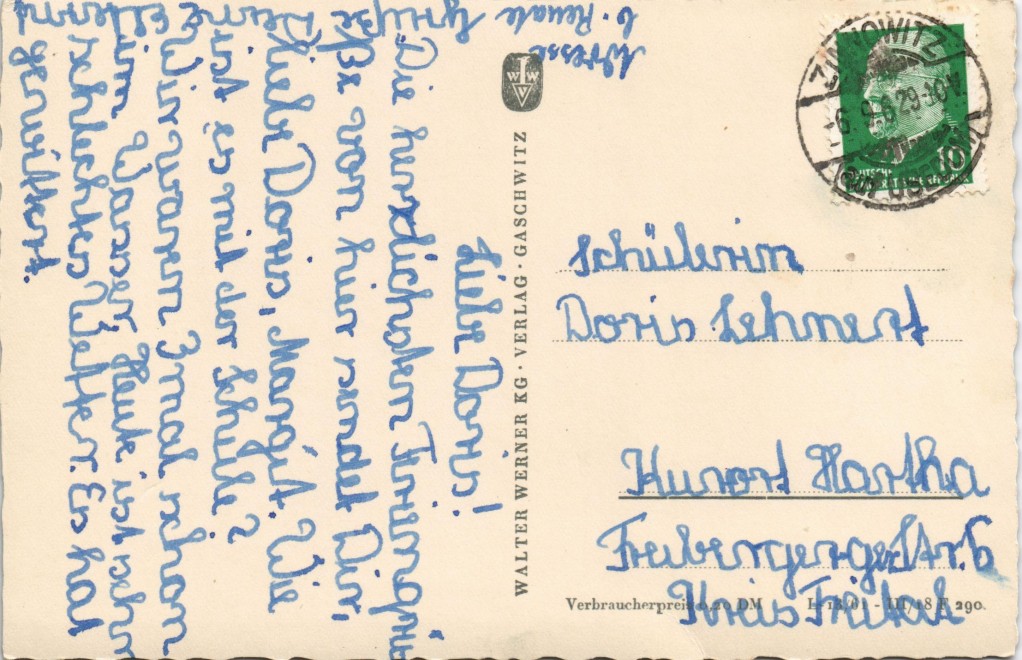 Liebe Doris!
Die herzlichsten Feriengrü-
ße von hier sendet Dir,
liebe Doris, Margit. Wie
ist es mit der Schule?
Wir waren 3mal schon
im Wasser. Heute ist sehr
schlechtes Wetter. Es hat
gewittert.
Grüße Deine Eltern
b. Renate
Adresse
WALTER WERNER KG · VERLAG · GASCHWITZ
W W
V
ZINNOWITZ
-6.9.6
10
Schülerin
Doris Lehnert
Kurort Hartha
Freibergerstr. 6
Kreis Freital
Verbraucherpreis 0,20 DM L 13/61 - III/18 F 290.